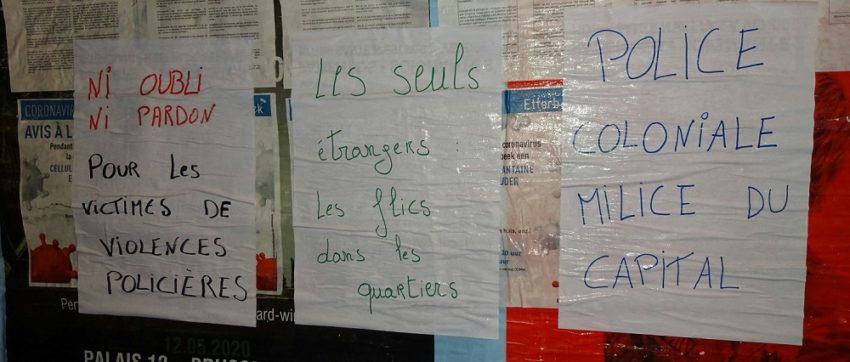 NI OUBLI
NI PARDON
POUR LES
VICTIMES DE
VIOLENCES
POLICIÈRES
LES SEULS
étrangers :
Les flics
dans les
quartiers
POLICE
COLONIALE
MILICE DU
CAPITAL
CORONAVI
AVIS À L
Pendant
la
CELLUL
Etterb
coronavirus
beek een
ANTAINE
UDER
uur
Per
ard-win
12.05.2020
PALAIS 12